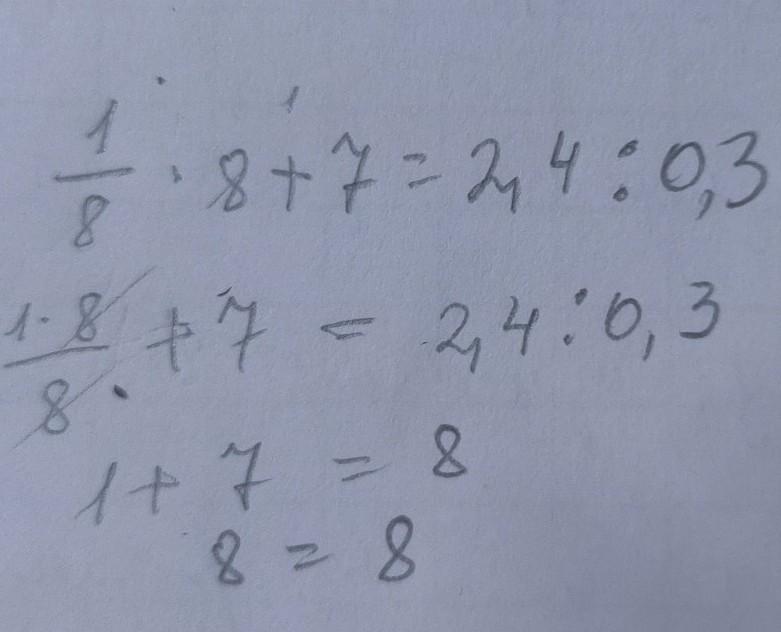 1/8 · 8 + 7 = 2,4 : 0,3
1·8/8 + 7 = 2,4 : 0,3
1 + 7 = 8
8 = 8